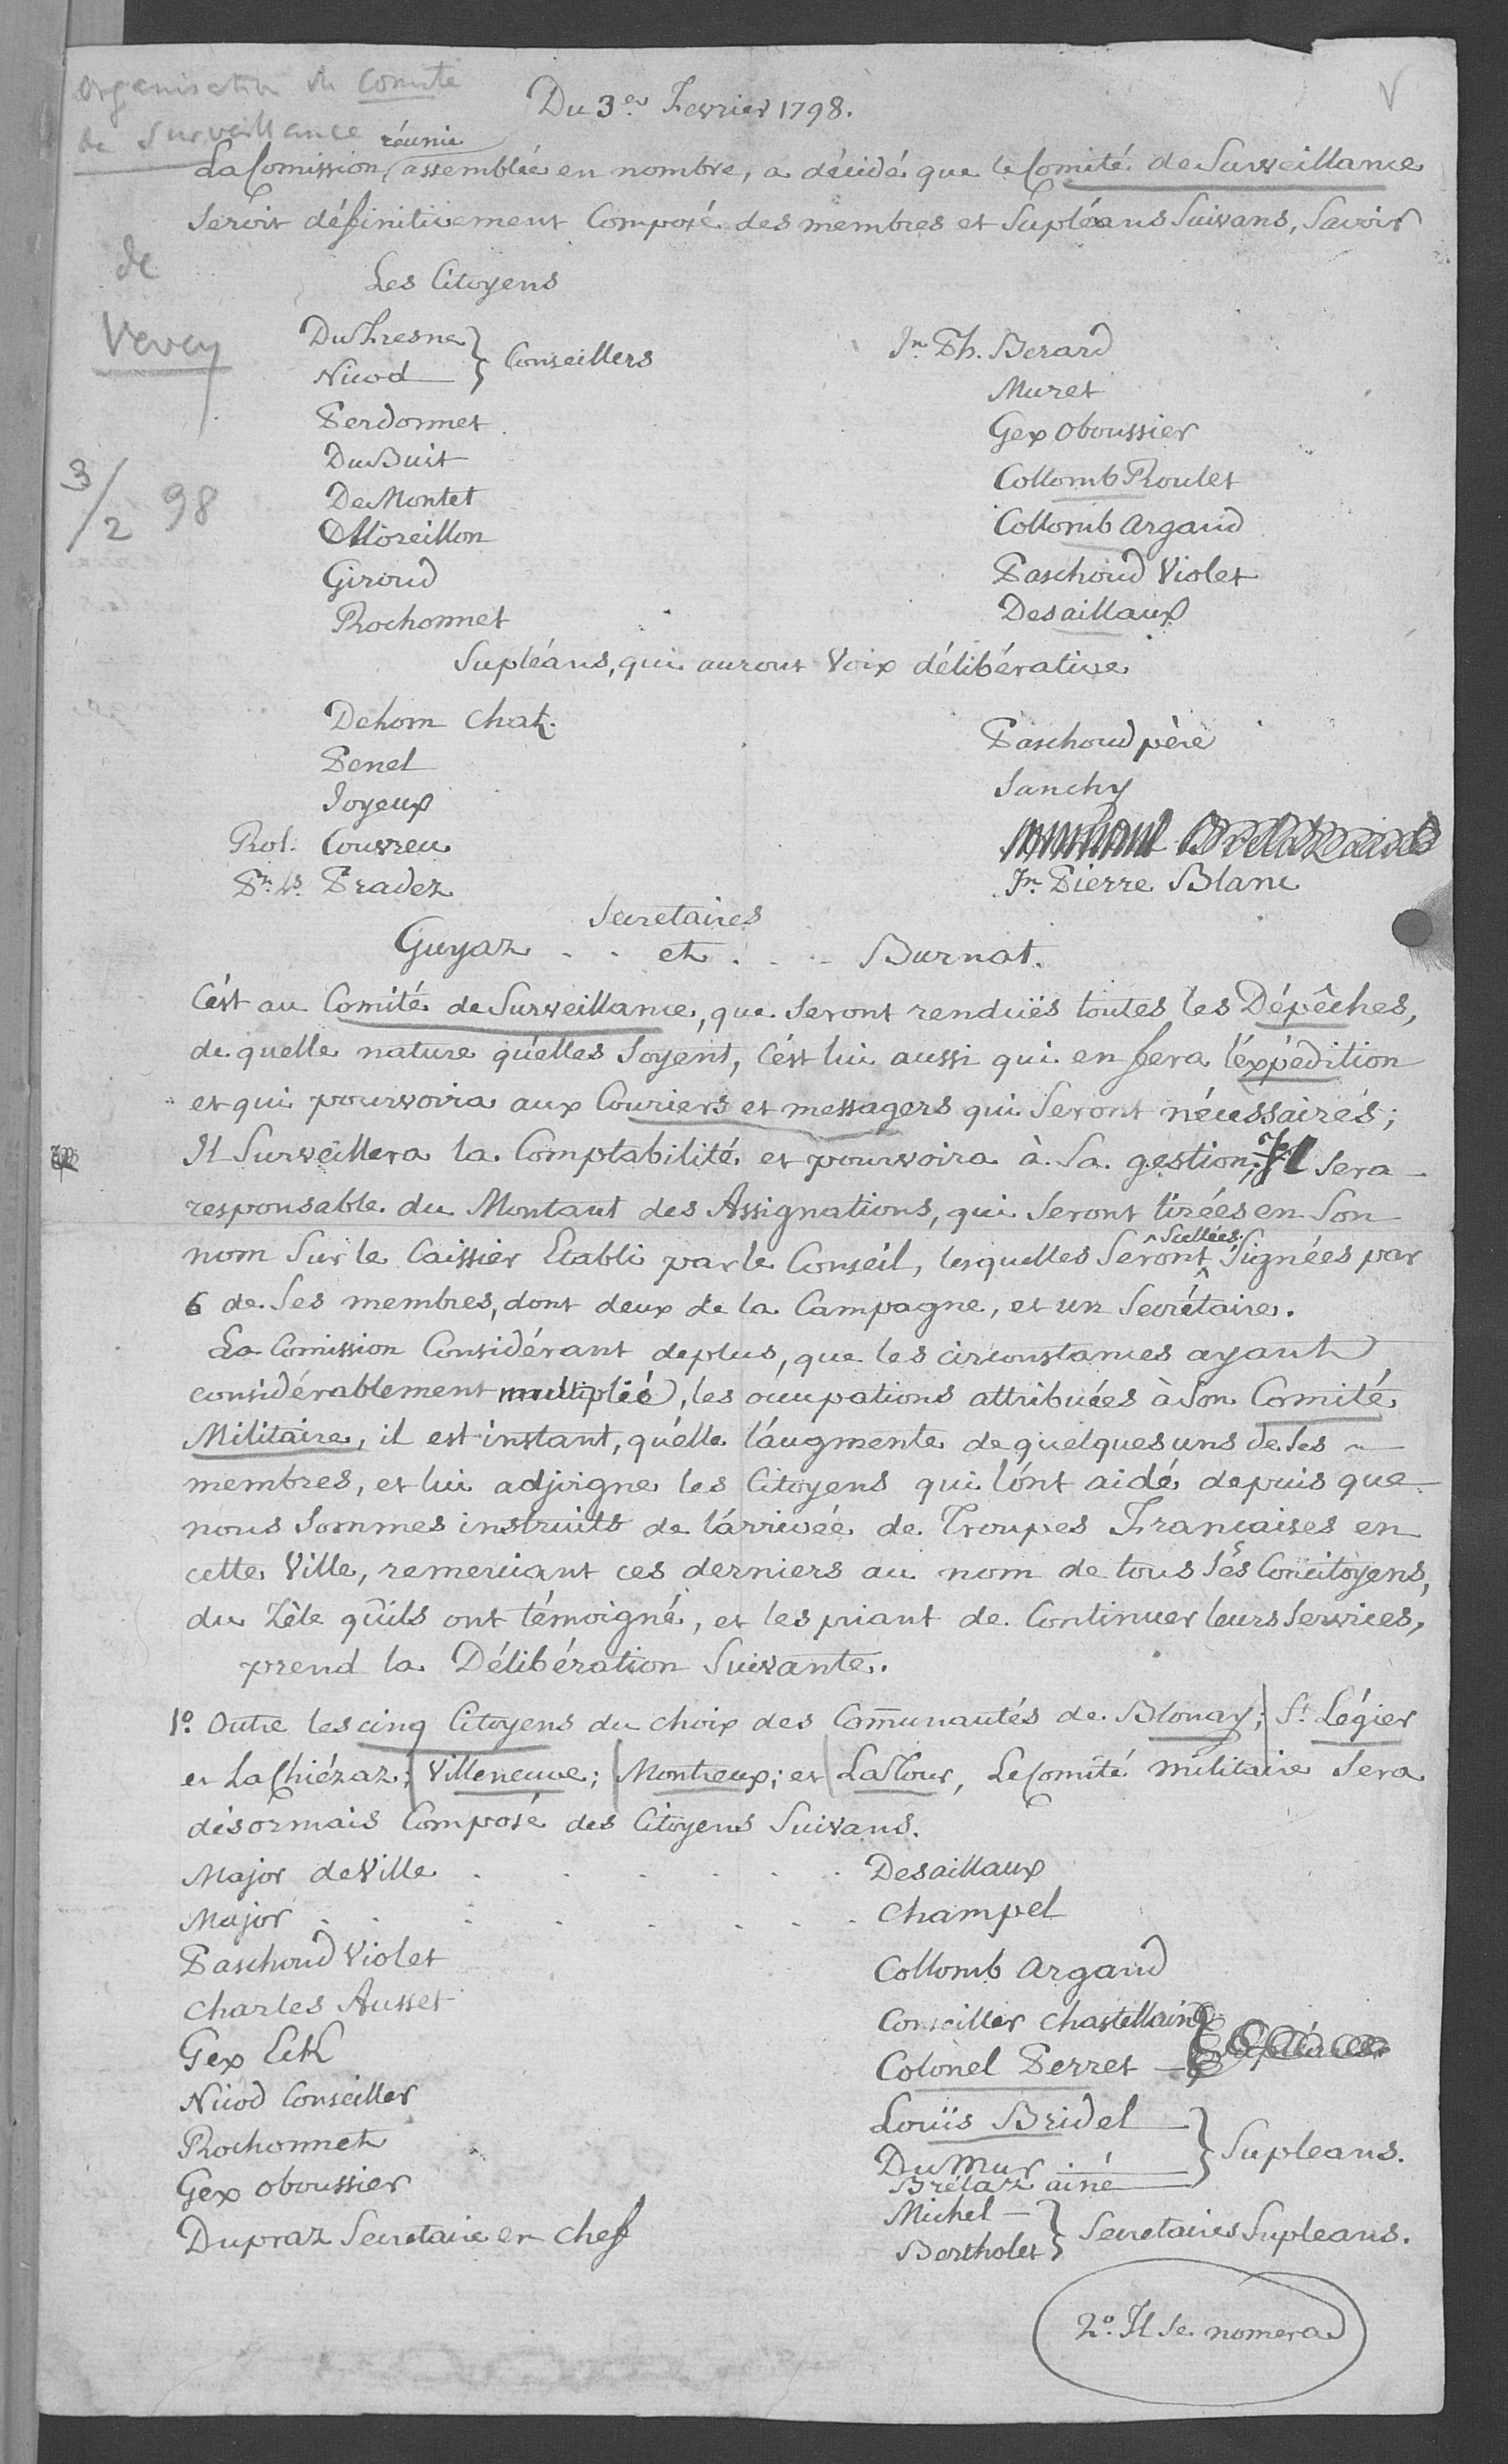 Organisation du Comité
de Surveillance
de
Vevey
3/2 98
V
Du 3e. Fevrier 1798.
réunie
La Comission, assemblée en nombre, a décidé que le Comité de Surveillance
seroit définitivement Composé des membres et Supléans Suivans, Savoir
Les Citoyens
DuFresne } Conseillers
Nicod
Perdonnet
DuBuit
DeMontet
Moreillon
Giroud
Rochonnet
Jn. Ph. Berard
Muret
Gex Oboussier
Collomb Roulet
Collomb Argand
Paschoud Violet
Desaillaux
Supléans, qui auront Voix délibérative
Dehorn Chat.
Penel
Joyeux
Rol. Couvreu
Pr. Ls. Pradez
Paschoud père
Janchy
Jn. Pierre Blanc
Secretaires
Guyaz . . et . . . Burnat.
C'ést au Comité de Surveillance, que seront renduës toutes les Dépêches,
de quelle nature qu'elles Soyent, C'ést lui aussi qui en fera l'éxpédition
et qui pourvoira aux Couriers et messagers qui Seront nécessaires;
Il Surveillera la Comptabilité et pourvoira à Sa gestion, Il Sera
responsable du Montant des Assignations, qui Seront tirées en Son
nom Sur le Caissier Etabli par le Conseil, lesquelles Seront Scellées Signées par
6 de Ses membres, dont deux de la Campagne, et un Secrétaire.
La Comission Considérant deplus, que les circonstances ayant
considérablement multiplié, les ocupations attribuées à Son Comité
Militaire, il est instant, qu'élle l'áugmente de quelques uns de Ses
membres, et lui adjoigne les Citoyens qui l'ónt aidé depuis que
nous Sommes instruits de l'árrivée de Troupes Françaises en
cette Ville, remerciant ces derniers au nom de tous Ses Concitoyens,
du Zèle qu'ils ont témoigné, et les priant de Continuer leurs Services,
prend la Délibération Suivante.
1º. Outre les cinq Citoyens du choix des Comunautés de Blonay; St. Légier
et La Chiézaz; Villeneuve; Montreux; et LaTour, Le Comité militaire Sera
désormais Composé des Citoyens Suivans.
Major de Ville . . . . . . Desaillaux
Major . . . . . . . . Champel
Paschoud Violet
Charles Ausset
Gex
Nicod Conseiller
Rochonnet
Gex Oboussier
Dupraz Secretaire en chef
Collomb Argand
Conseiller Chastellain
Colonel Perret
Louïs Bridel
DuMur } Supleans.
Brélaz ainé
Michel } Secretaires Supleans.
Bertholet
2º. Il se nomera